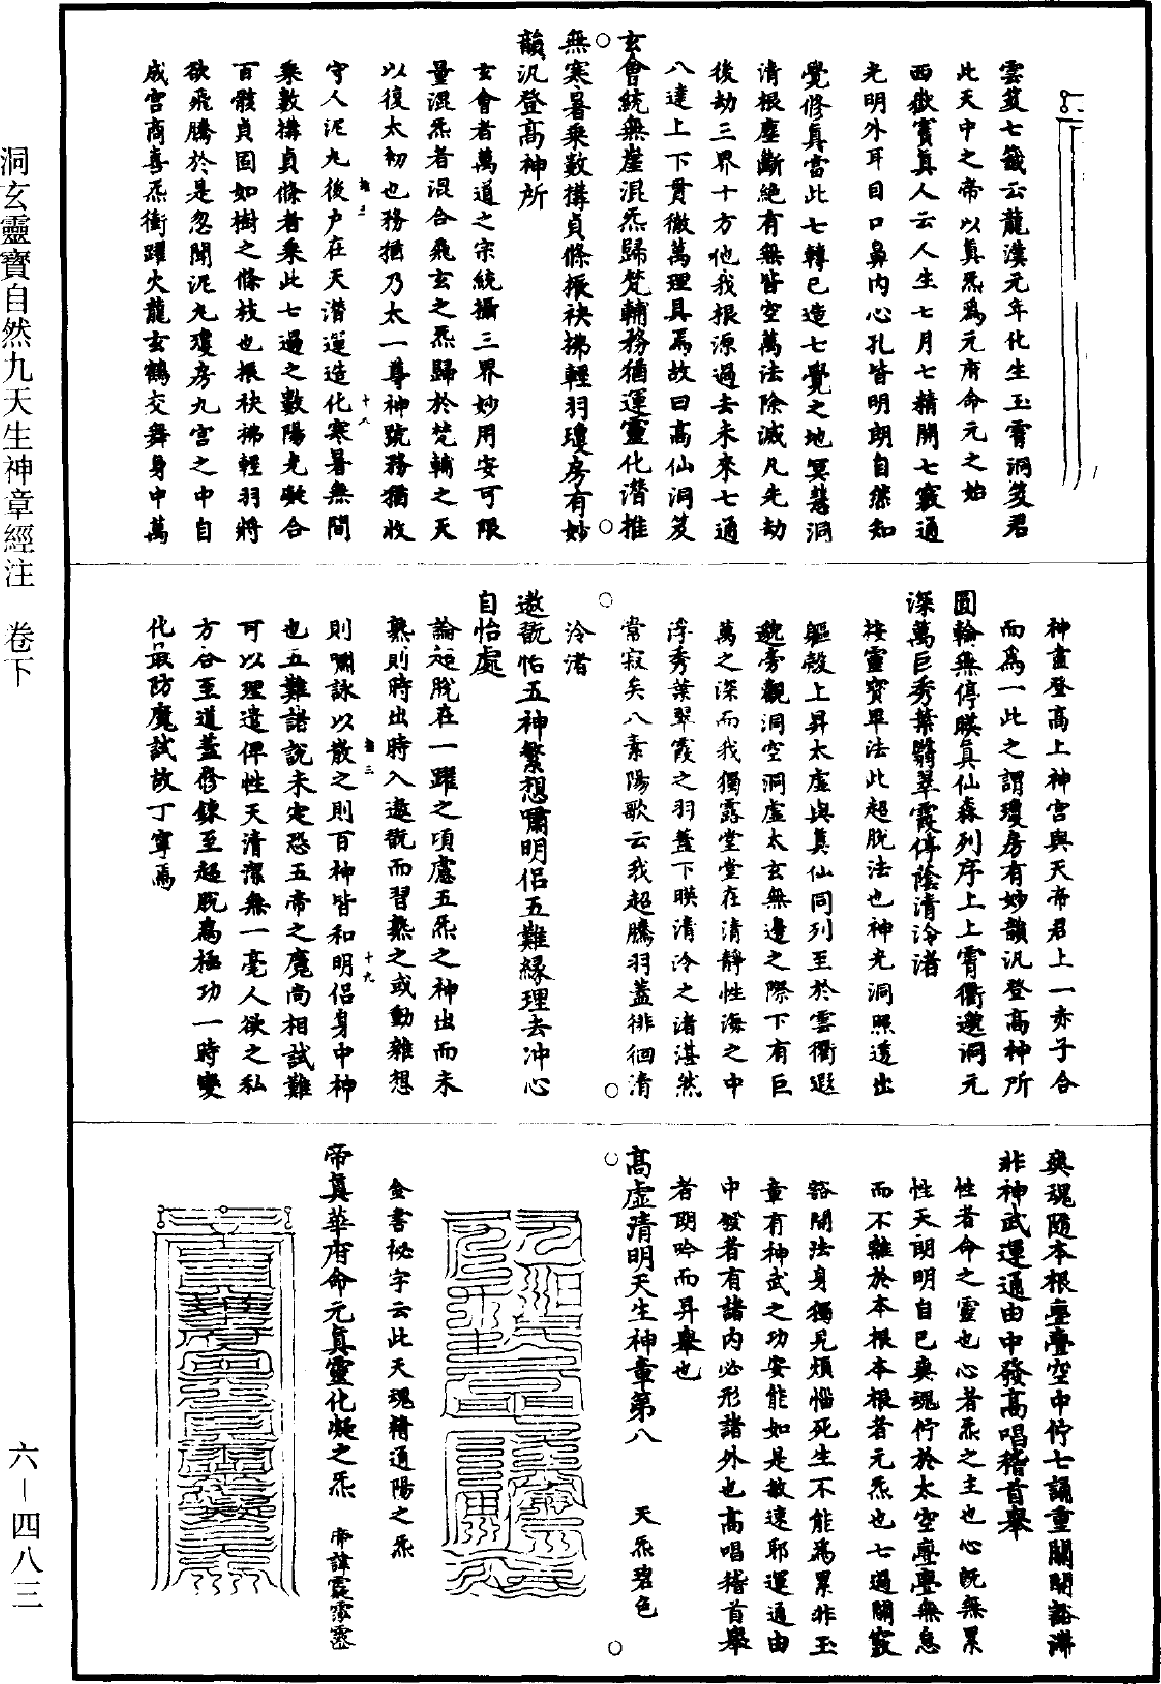 雲笈七籤云龍漢元年化生玉霄洞笈君
此天中之帝以真炁爲元府命元之始
西嶽賓真人云人生七月七精開七竅通
光明外耳目口鼻内心孔皆明朗自然知
覺修真當此七轉已造七覺之地冥慧洞
清根塵斷絶有無皆空萬法除滅凡先劫
後劫三界十方他我根源過去未來七通
八達上下貫徹萬理具焉故曰高仙洞笈
玄會統無崖混炁歸梵輔務猶運靈化潜推
無寒暑乘數構貞條振袂拂輕羽瓊房有妙
韻汎登高神所
玄會者萬道之宗統攝三界妙用安可限
量混炁者混合飛玄之炁歸於梵輔之天
以復太初也務猶乃太一尊神號務猶收
守人泥丸後户在天潜運造化寒暑無間
乘數構貞條者乘此七過之數陽光凝合
百骸貞固如樹之條枝也振袂拂輕羽將
欲飛騰於是忽聞泥丸瓊房九宮之中自
成宫商喜炁衝躍火龍玄鶴交舞身中萬
神畫登高上神宮與天帝君上一赤子合
而爲一此之謂瓊房有妙韻汎登高神所
圓輪無停暎真仙森列序上上霄衢邈洞元
深萬巨秀葉翳翠霞停蔭清泠渚
按靈寶畢法此超脱法也神光洞照透出
軀殼上昇太虚與真仙同列至於雲衢遐
邈旁觀洞空洞虚太玄無邊之際下有巨
萬之深而我獨露堂堂在清靜性海之中
浮秀葉翠霞之羽蓋下暎清泠之渚湛然
常寂矣八素陽歌云我超騰羽蓋徘徊清
泠渚
遨翫怡五神繁想嘯明侣五難緣理去冲心
自怡處
論超脱在一躍之頃慮五炁之神出而未
熟則時出時入遨翫而習熟之或動雜想
則嘯詠以散之則百神皆和明侣身中神
也五難諸説未定恐五帝之魔尚相試難
可以理遣俾性天清潔無一毫人欲之私
方合至道蓋修鍊至超脱爲極功一時變
化最防魔試故丁寧焉
爽魂隨本根亹亹空中佇七誦重關開豁滯
非神武運通由中發高唱稽首舉
性者命之靈也心者炁之主也心既無累
性天朗明自已爽魂佇於太空亹亹無怠
而不離於本根本根者元炁也七過關竅
豁開法身獨見煩惱死生不能爲累非玉
章有神武之功安能如是敏速耶運通由
中發者有諸内必形諸外也高唱稽首舉
者朗吟而昇舉也
高虚清明天生神章第八　天炁碧色
金書祕字云此天魂精通陽之炁
帝真華府命元真靈化凝之炁　帝諱
洞玄靈寶自然九天生神章經注　卷下
六—四八三